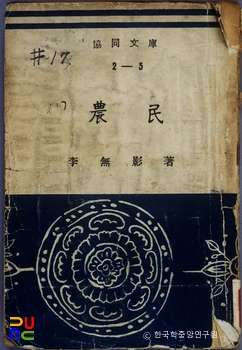 協同文庫
#17
2—5
農民
李無影著
PURC
© 한국학중앙연구원